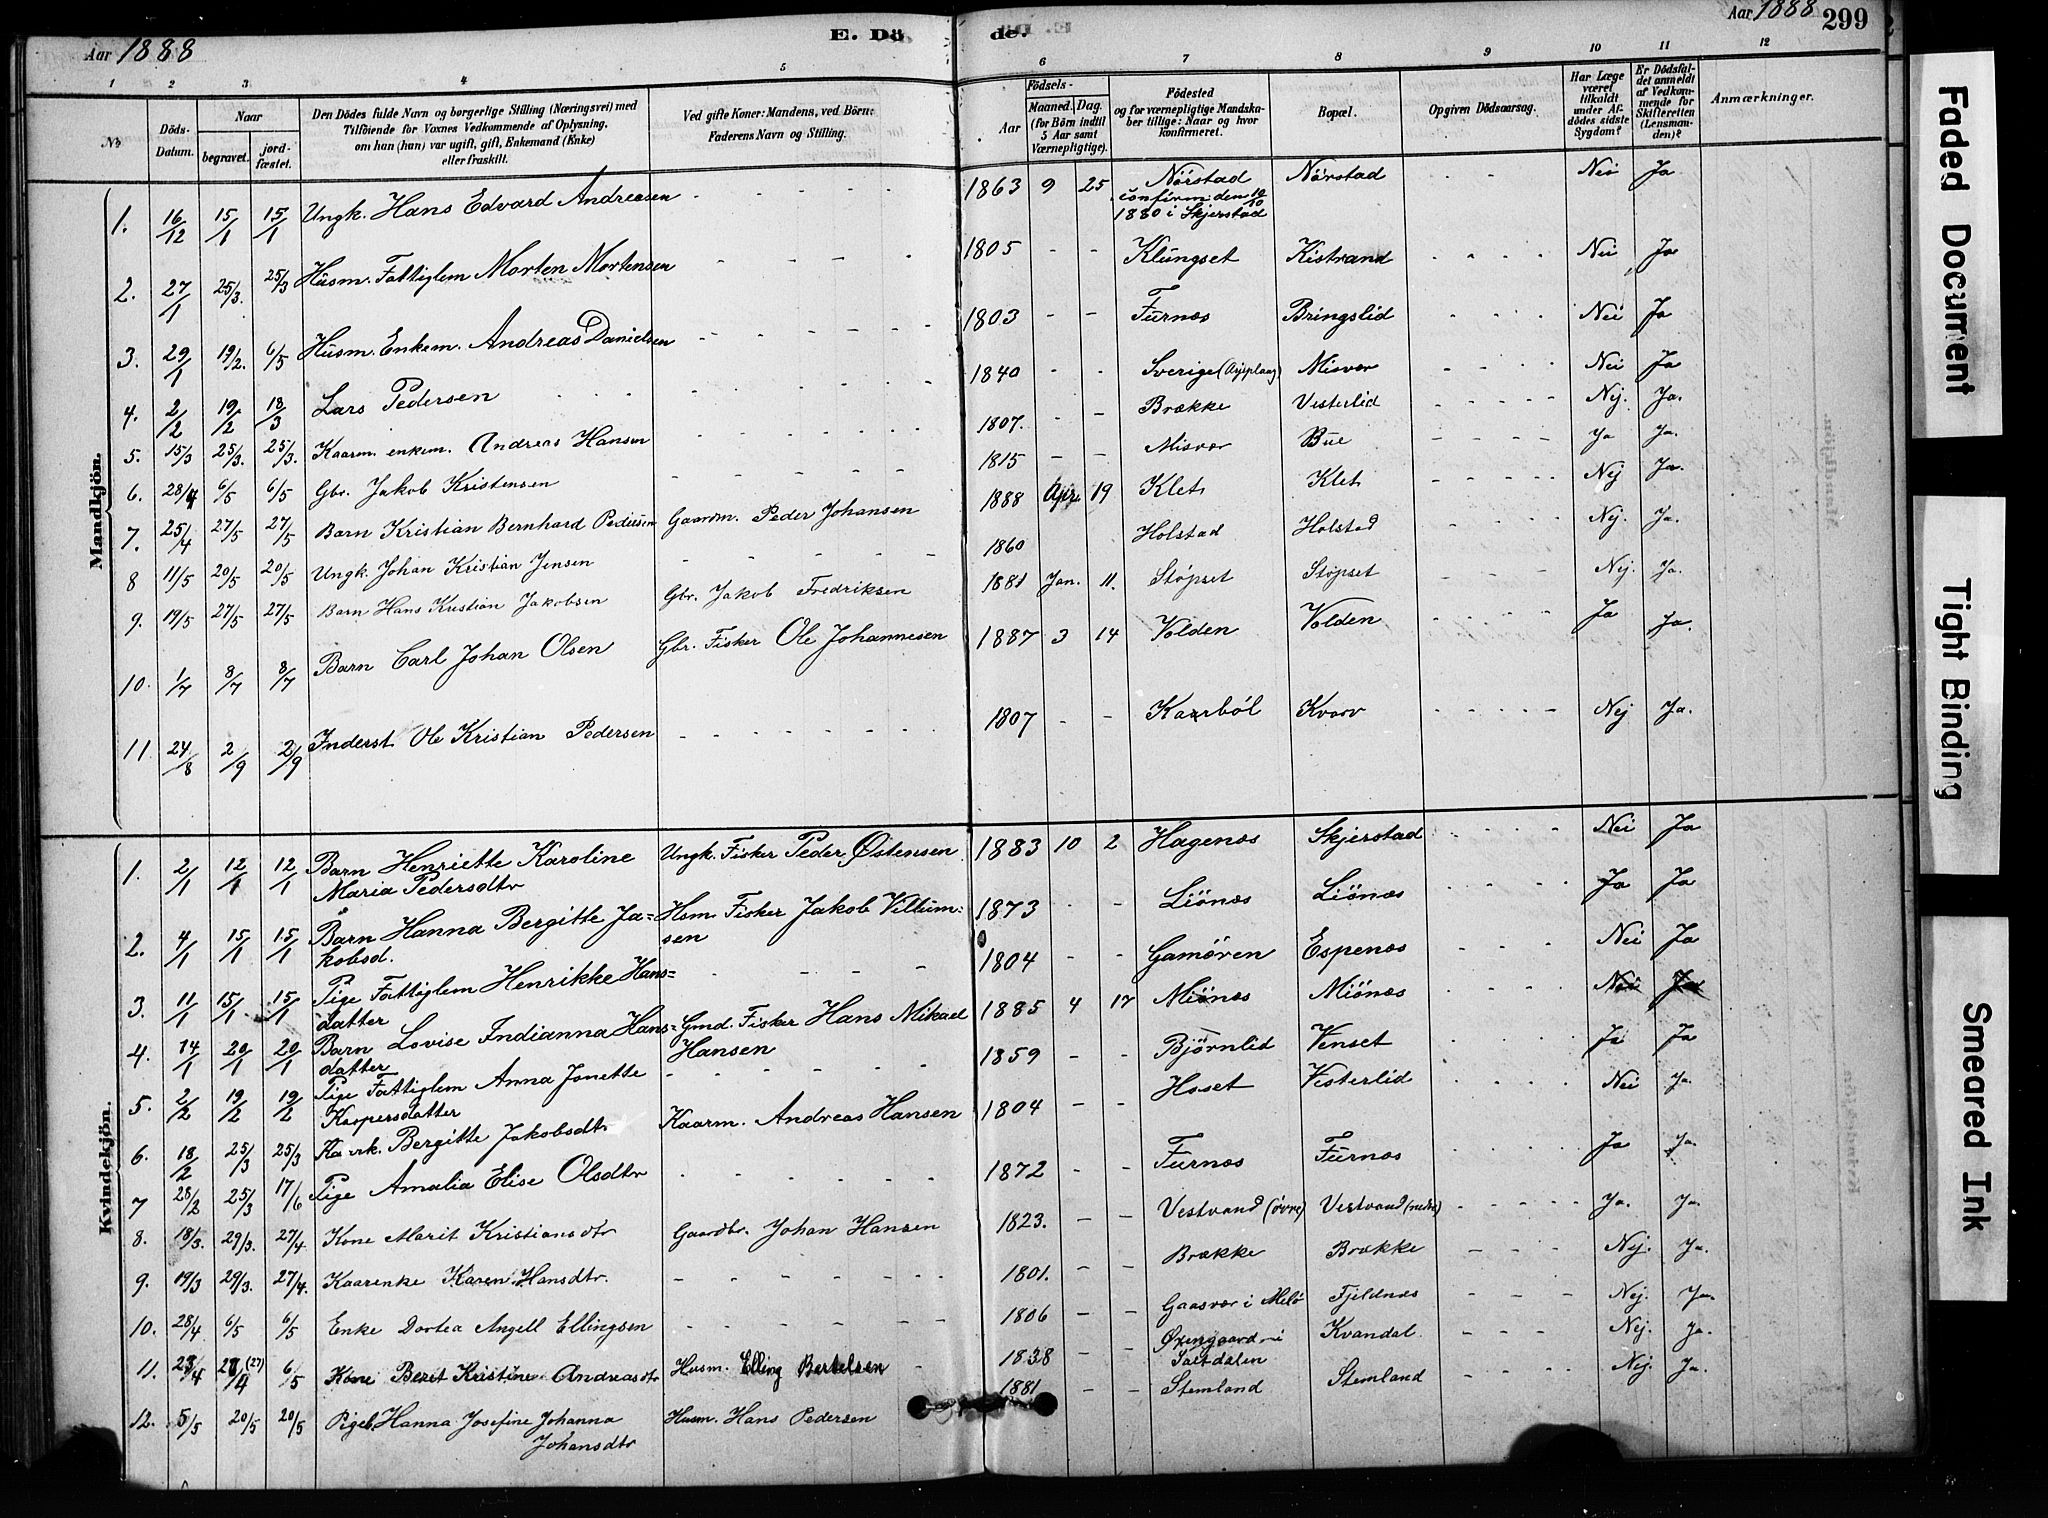 Aar 1888
E. Dö
de.
Aar 1888
299
1 2 3 4 5 6 7 8 9 10 11 12
No
Döds-Datum.
Naar
begravet.
jord-fæstet.
Den Dödes fulde Navn og borgerlige Stilling (Næringsvei) med
Tilföiende for Voxnes Vedkommende af Oplysning,
om han (hun) var ugift, gift, Enkemand (Enke)
eller fraskilt.
Ved gifte Koner: Mandens, ved Börn:
Faderens Navn og Stilling.
Födsels-
Aar
Maaned. Dag.
(for Börn indtil
5 Aar samt
Værnepligtige).
Födested
og for værnepligtige Mandska-
ber tillige: Naar og hvor
konfirmeret.
Bopæl.
Opgiven Dödsaarsag.
Har Læge
været
tilkaldt
under Af-
dödes sidste
Sygdom?
Er Dödsfal-
det anmeldt
af Vedkom-
mende for
Skifteretten
(Lensman-
den)?
Anmærkninger.
Mandkjön.
1. 16/12 15/1 15/1 Ungk. Hans Edvard Andreasen - - - - 1863 9 25 Nörstad Nörstad - - Nei Ja
confirm den 10/10
1880 i Skjerstad
2. 27/1 25/3. 25/3 Husm. Fattiglem Morten Mortensen - - - - 1805 - - Klungset Kistrand - - - - Nei Ja
3. 29/1 19/2. 6/5 Husm. Enkem. Andreas Danielsen - - - - 1803 - - Furnæs Bringslid - - - - Nei Ja
4. 2/2 19/2 18/3 Lars Pedersen - - - - 1840 - - Sverige (Arjeplaag) Misvær - - - - Nei Ja
5. 15/3 25/3. 25/3. Kaarm. enkem. Andreas Hansen - - - - 1807. - - Brække Vesterlid - - - - Nej. Ja.
6. 28/4 6/5 6/5 Gbr. Jakob Kristensen - - - - 1815 - - Misvær Bue - - - - Ja Ja.
7. 25/4 27/5 27/5 Barn Kristian Bernhard Pedersen Gaardm. Peder Johansen 1888 Apr. 19 Klet Klet - - - - Nej Ja.
8 11/5 20/5 20/5 Ungk. Johan Kristian Jensen - - - - 1860 Holstad Holstad - - - - Nej. Ja.
9. 19/5 27/5 27/5 Barn Hans Kristian Jakobsen Gbr. Jakob Fredriksen 1881 Jan. 11. Støpset Støpset - - - Nej. Ja.
10. 1/7 8/7 8/7 Barn Carl Johan Olsen Gbr. Fisker Ole Johannesen 1887 3 14 Volden Volden - - - - Ja Ja.
11 24/8 2/9 2/9 Inderst Ole Kristian Pedersen - - - - 1807 - - Kaarböl Kvarv - - - - Nej Ja.
Kvindekjön.
1. 2/1 12/1 12/1 Barn Henriette Karoline Ungk. Fisker Peder Østensen 1883 10 2 Hagenæs Skjerstad - - - - Nei Ja
Maria Pedersdtr
2. 4/1 15/1 15/1 Barn Hanna Bergitte Ja- Hsm. Fisker Jakob Villum- 1873 - - Liönæs Liönæs - - - - Ja Ja
kobsd. sen
3. 11/1 15/1 15/1 Pige Fattiglem Henrikke Hans= - - - - 1804 - - Gamören Espenæs - - - - Nei Ja
datter
4. 14/1 20/1 20/1 Barn Lovise Indianna Hans= Gmd. Fisker Hans Mikael 1885 4 17 Miönæs Miönæs - - - - Nei Ja
datter Hansen
5. 2/2 19/2 19/2 Pige Fattiglem Anna Jonette - - - - 1859 - - Björnlid Venset - - - - Ja Ja
Kaspersdatter
6. 18/2 25/3 25/3 Kaark. Bergitte Jakobsdtr Kaarm. Andreas Hansen 1804 - - Hoset Vesterlid - - - - Nei Ja.
7 28/2 25/3 17/6 Pige Amalia Elise Olsdtr - - - - 1872 - - Furnæs Furnæs - - - - Ja Ja.
8. 18/3. 29/3. 27/4 Kone Marit Kristiansdtr Gaardbr. Johan Hansen 1823. - - Vestvand (övre) Vestvand (nedre) - - - - Ja. Ja.
9. 19/3 29/3. 27/4. Kaarenke Karen Hansdtr. - - - - 1801. - - Brække Brække - - - Nej. Ja.
10. 28/4 6/5 6/5 Enke Dortea Angell Ellingsen - - - - 1806 - - Gaasvær i Melö Fjeldnæs - - - Nej. Ja.
11. 23/4 28/4 (27) 6/5 Kone Berit Kristine Andreasdtr Husm. Elling Bertelsen 1838 - - Øxengaard i Kvandal - - - Nej. Ja.
Saltdalen
12. 5/5 20/5 20/5 Pigeb. Hanna Josefine Johanna Husm. Hans Pedersen 1881 - - Stemland Stemland - - - Nej. Ja.
Johansdtr
Faded Document
Tight Binding
Smeared Ink